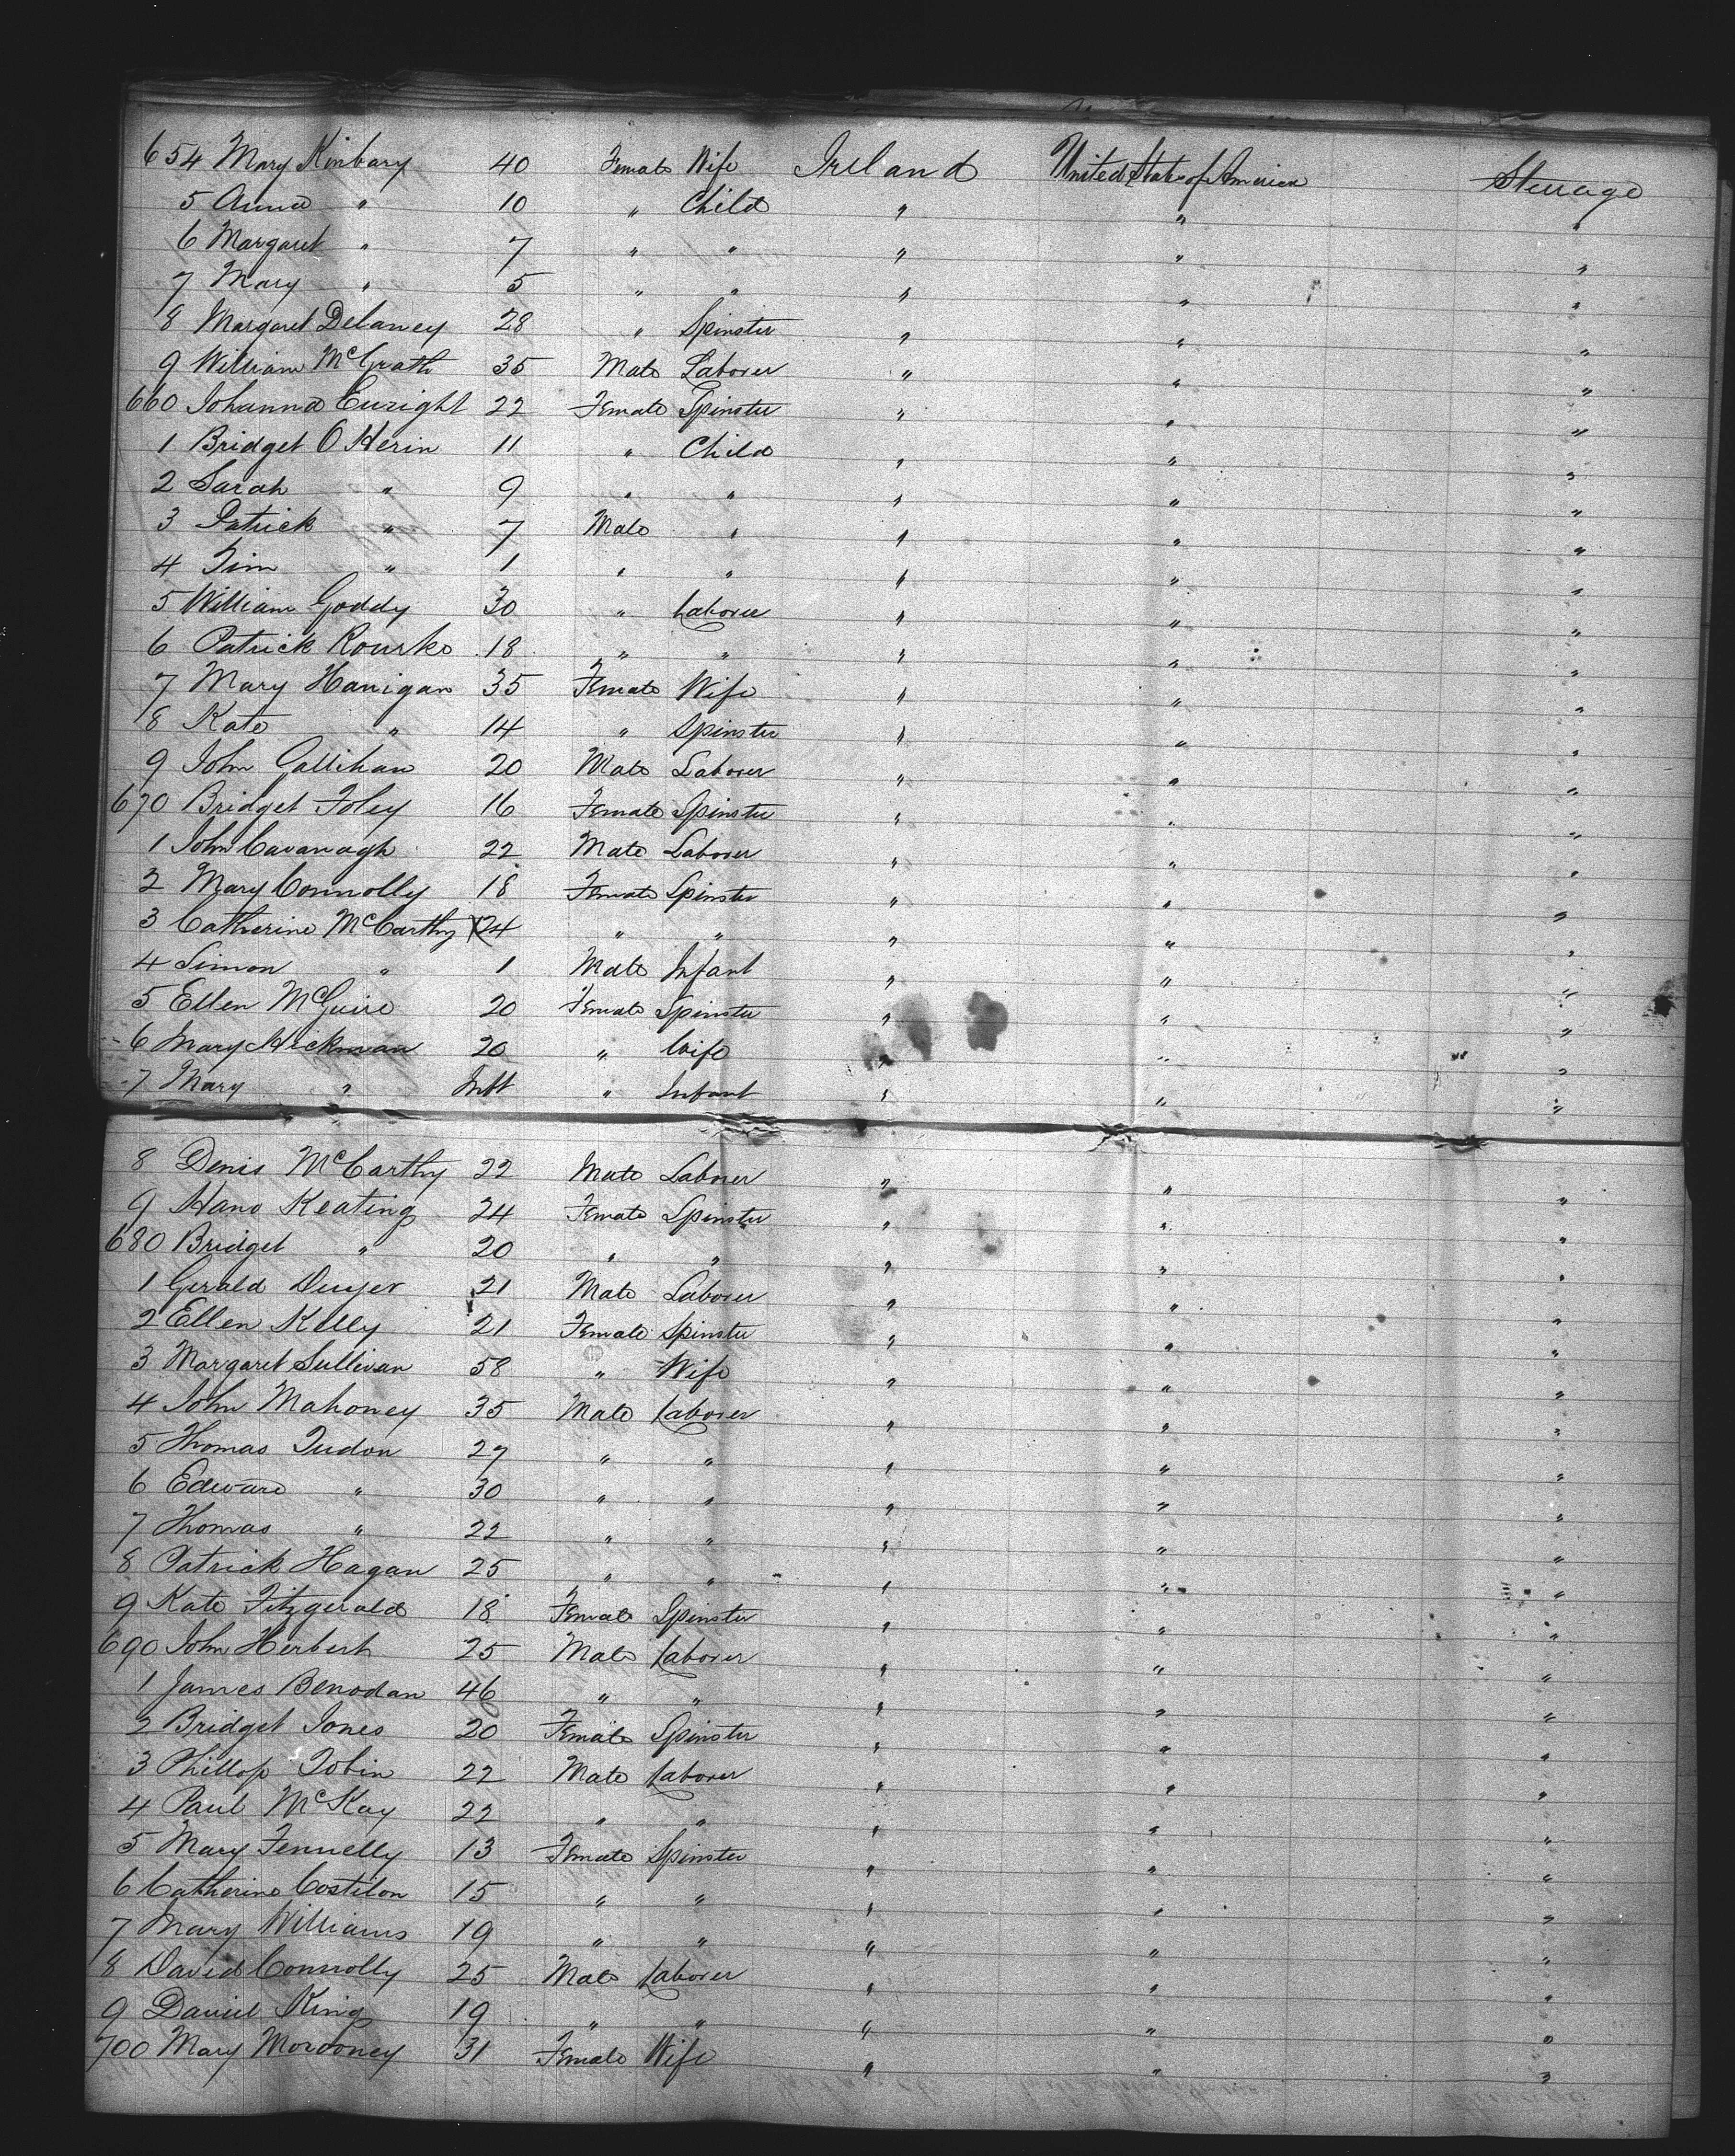 654 Mary Kinbary 40 Female Wife Ireland United States of America Steerage
5 Anna " 10 " Child " " "
6 Margaret " 7 " " " " "
7 Mary " 5 " " " " "
8 Margaret Delaney 28 " Spinster " " "
9 William McGrath 35 Male Laborer " " "
660 Johanna Enright 22 Female Spinster " " "
1 Bridget O Herin 11 " Child " " "
2 Sarah " 9 " " " " "
3 Patrick " 7 Male " " " "
4 Tim " 1 " " " " "
5 William Goddy 30 " Laborer " " "
6 Patrick Rourke 18 " " " " "
7 Mary Hanigan 35 Female Wife " " "
8 Kate " 14 " Spinster " " "
9 John Callihan 20 Male Laborer " " "
670 Bridget Foley 16 Female Spinster " " "
1 John Cavanagh 22 Male Laborer " " "
2 Mary Connolly 18 Female Spinster " " "
3 Catherine McCarthy 24 " " " " "
4 Simon " 1 Male Infant " " "
5 Ellen McGuire 20 Female Spinster " " "
6 Mary Hickman 20 " Wife " " "
7 Mary " Inft " Infant " " "
8 Denis McCarthy 22 Male Laborer " " "
9 Hano Keating 24 Female Spinster " " "
680 Bridget " 20 " " " " "
1 Gerald Dwyer 21 Male Laborer " " "
2 Ellen Kelly 21 Female Spinster " " "
3 Margaret Sullivan 58 " Wife " " "
4 John Mahoney 35 Male Laborer " " "
5 Thomas 27 " " " " "
6 Edward " 30 " " " " "
7 Thomas " 22 " " " " "
8 Patrick Hagan 25 " " " " "
9 Kate Fitzgerald 18 Female Spinster " " "
690 John Herbert 25 Male Laborer " " "
1 James Benodan 46 " " " " "
2 Bridget Jones 20 Female Spinster " " "
3 Phillop Tobin 22 Male Laborer " " "
4 Paul McKay 22 " " " " "
5 Mary Fennelly 13 Female Spinster " " "
6 Catherine Costilon 15 " " " " "
7 Mary Williams 19 " " " " "
8 David Connolly 25 Male Laborer " " "
9 Daniel King 19 " " " " "
700 Mary Morooney 31 Female Wife " " "